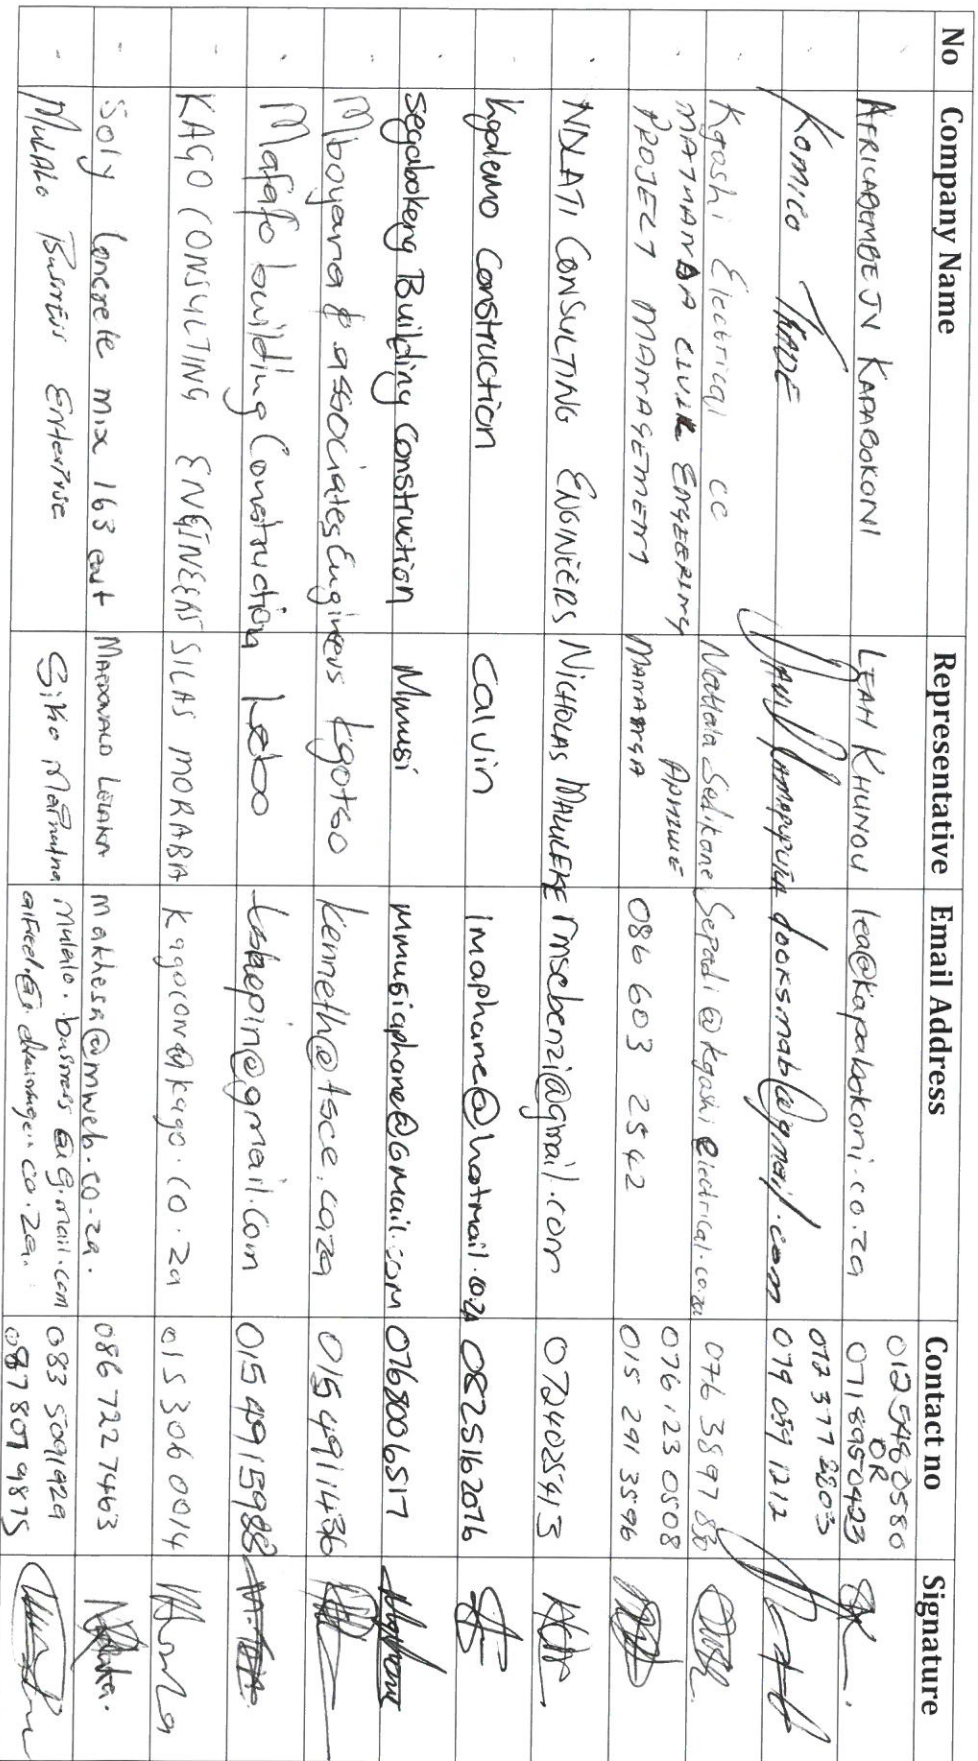 No Company Name Representative Email Address Contact no Signature
012 548 0580
OR
AFRICABEMBEJV KAPABOKONI LEAH KHUNOU lea@kapabokoni.co.za 0718950423
072 377 8803
Komico TRADE dooksmab@gmail.com 079 059 1212
Kgoshi Electrical cc Mahlala Sedikane Sepadi@kgoshielectrical.co.za 076 3897 830
MATHANDA CIVIL ENGEERING 076 123 0508
PROJECT MANAGEMENT MANANGA 086 603 2542 015 291 3596
NDLATI CONSULTING ENGINEERS NICHOLAS MALULEKE rmsebenzi@gmail.com 0724025413
Kgalemo Construction Calvin lmaphane@hotmail.co.za 0825162076
Segabokeng Building Construction Mmusi mmusiaphane@gmail.com 0768006517
Mboyana & associates Engineers Kgotso kenneth@tsce.co.za 015 491 1436
Mafafo building Construction Lebo 015 491 5988
KAGO CONSULTING ENGINEERS SILAS MORABA kagocon@kago.co.za 015 306 0014
Soly Concrete mix 163 MACDONALD makhesa@mweb.co.za. 086 722 7463
MULALO Business Enterprise Siko mulalo.business@gmail.com 083 5091929
087 807 9875